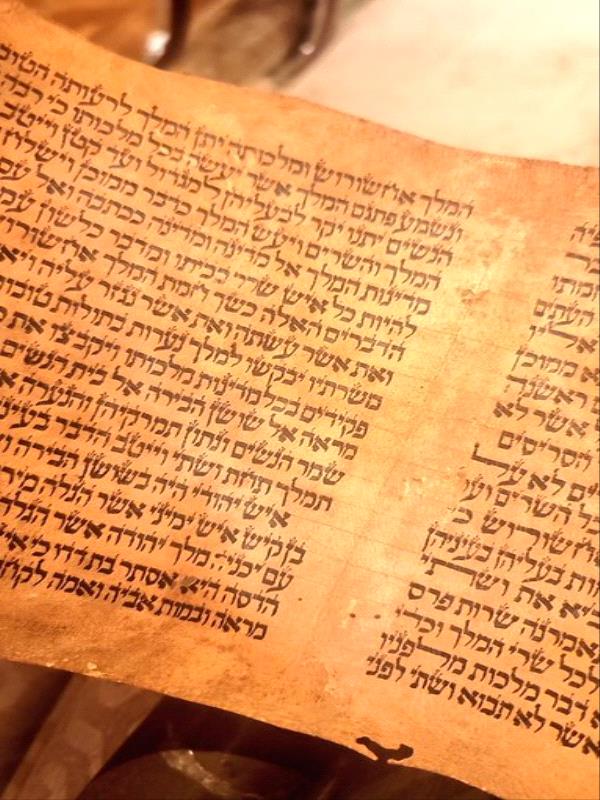 העתים
ממוכן
ראשנה
אשר לא
הסריסים
לא על
השרים
אחשורוש כי
בעליהן בעיניהן
את ושתי
תאמרנה שרות פרס
לכל שרי המלך וכדי
דבר מלכות מלפניו
אשר לא תבוא ושתי לפני
המלך אחשורוש ומלכותה יתן המלך לרעותה
ונשמע פתגם המלך אשר יעשה בכל מלכותו כי רבה
הנשים יתנו יקר לבעליהן למגדול ועד קטן וייטב
המלך והשרים ויעש המלך כדבר ממוכן וישלח
מדינות המלך אל מדינה ומדינה ככתבה ואל
להיות כל איש שרר בביתו ומדבר כלשון
הדברים האלה כשך חמת המלך
ואת אשר עשתה ואת אשר נגזר עליה
משרתיו יבקשו למלך נערות בתולות
פקידים בכל מדינות מלכותו ויקבצו את
מראה אל שושן הבירה אל בית הנשים
שמר הנשים ונתון תמרקיהן והנערה
תמלך תחת ושתי וייטב הדבר
איש יהודי היה בשושן הבירה
בן קיש איש ימיני אשר הגלה
עם יכניה מלך יהודה אשר הגלה
הדסה היא אסתר בת דדו כי
מראה ובמות אביה ואמה